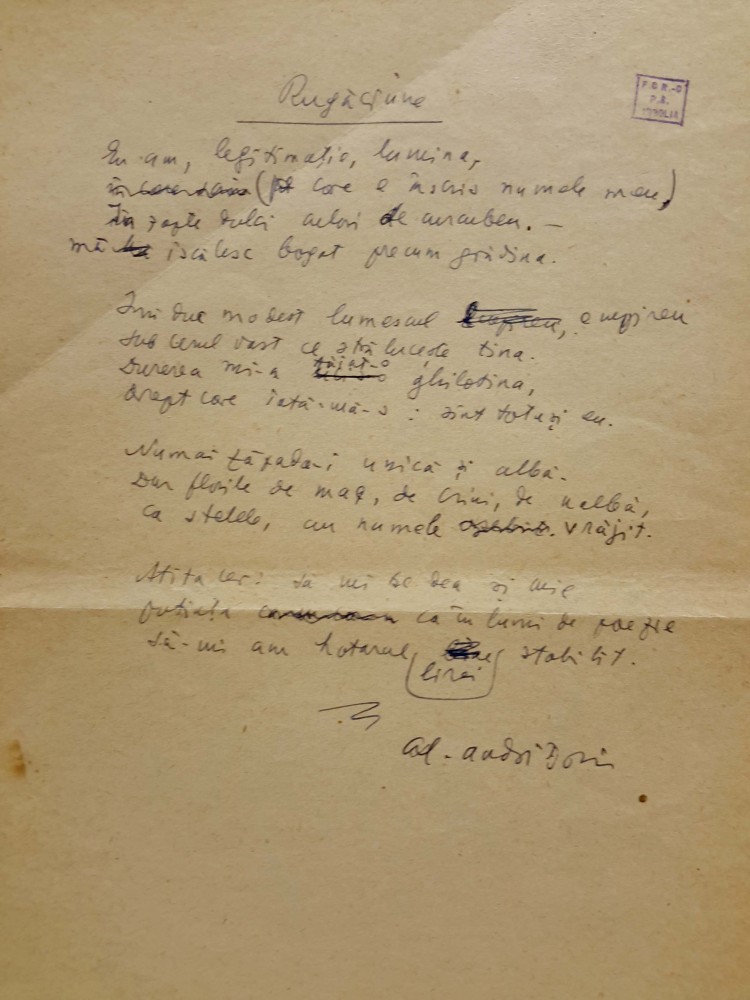 Rugăciune
P.A.
Eu am, legitimație, lumina,
(pe care e înscris numele meu,)
În șapte dulci culori de curcubeu. –
mă iscălesc bogat precum grădina.
Îmi duc modest lumescul, empireu
sub cerul vast ce strălucește tina.
Durerea mi-a tăiat-o ghilotina,
drept care iată-mă-s : sînt totuși eu.
Numai zăpada-i unică și albă.
Dar florile de mac, de crini, de nalbă,
ca stelele, au numele vrăjit.
Atîta cer: să mi se dea și mie
putința ca în lumi de poezie
să-mi am hotarul lirei stabilit.
Al. Andrițoiu